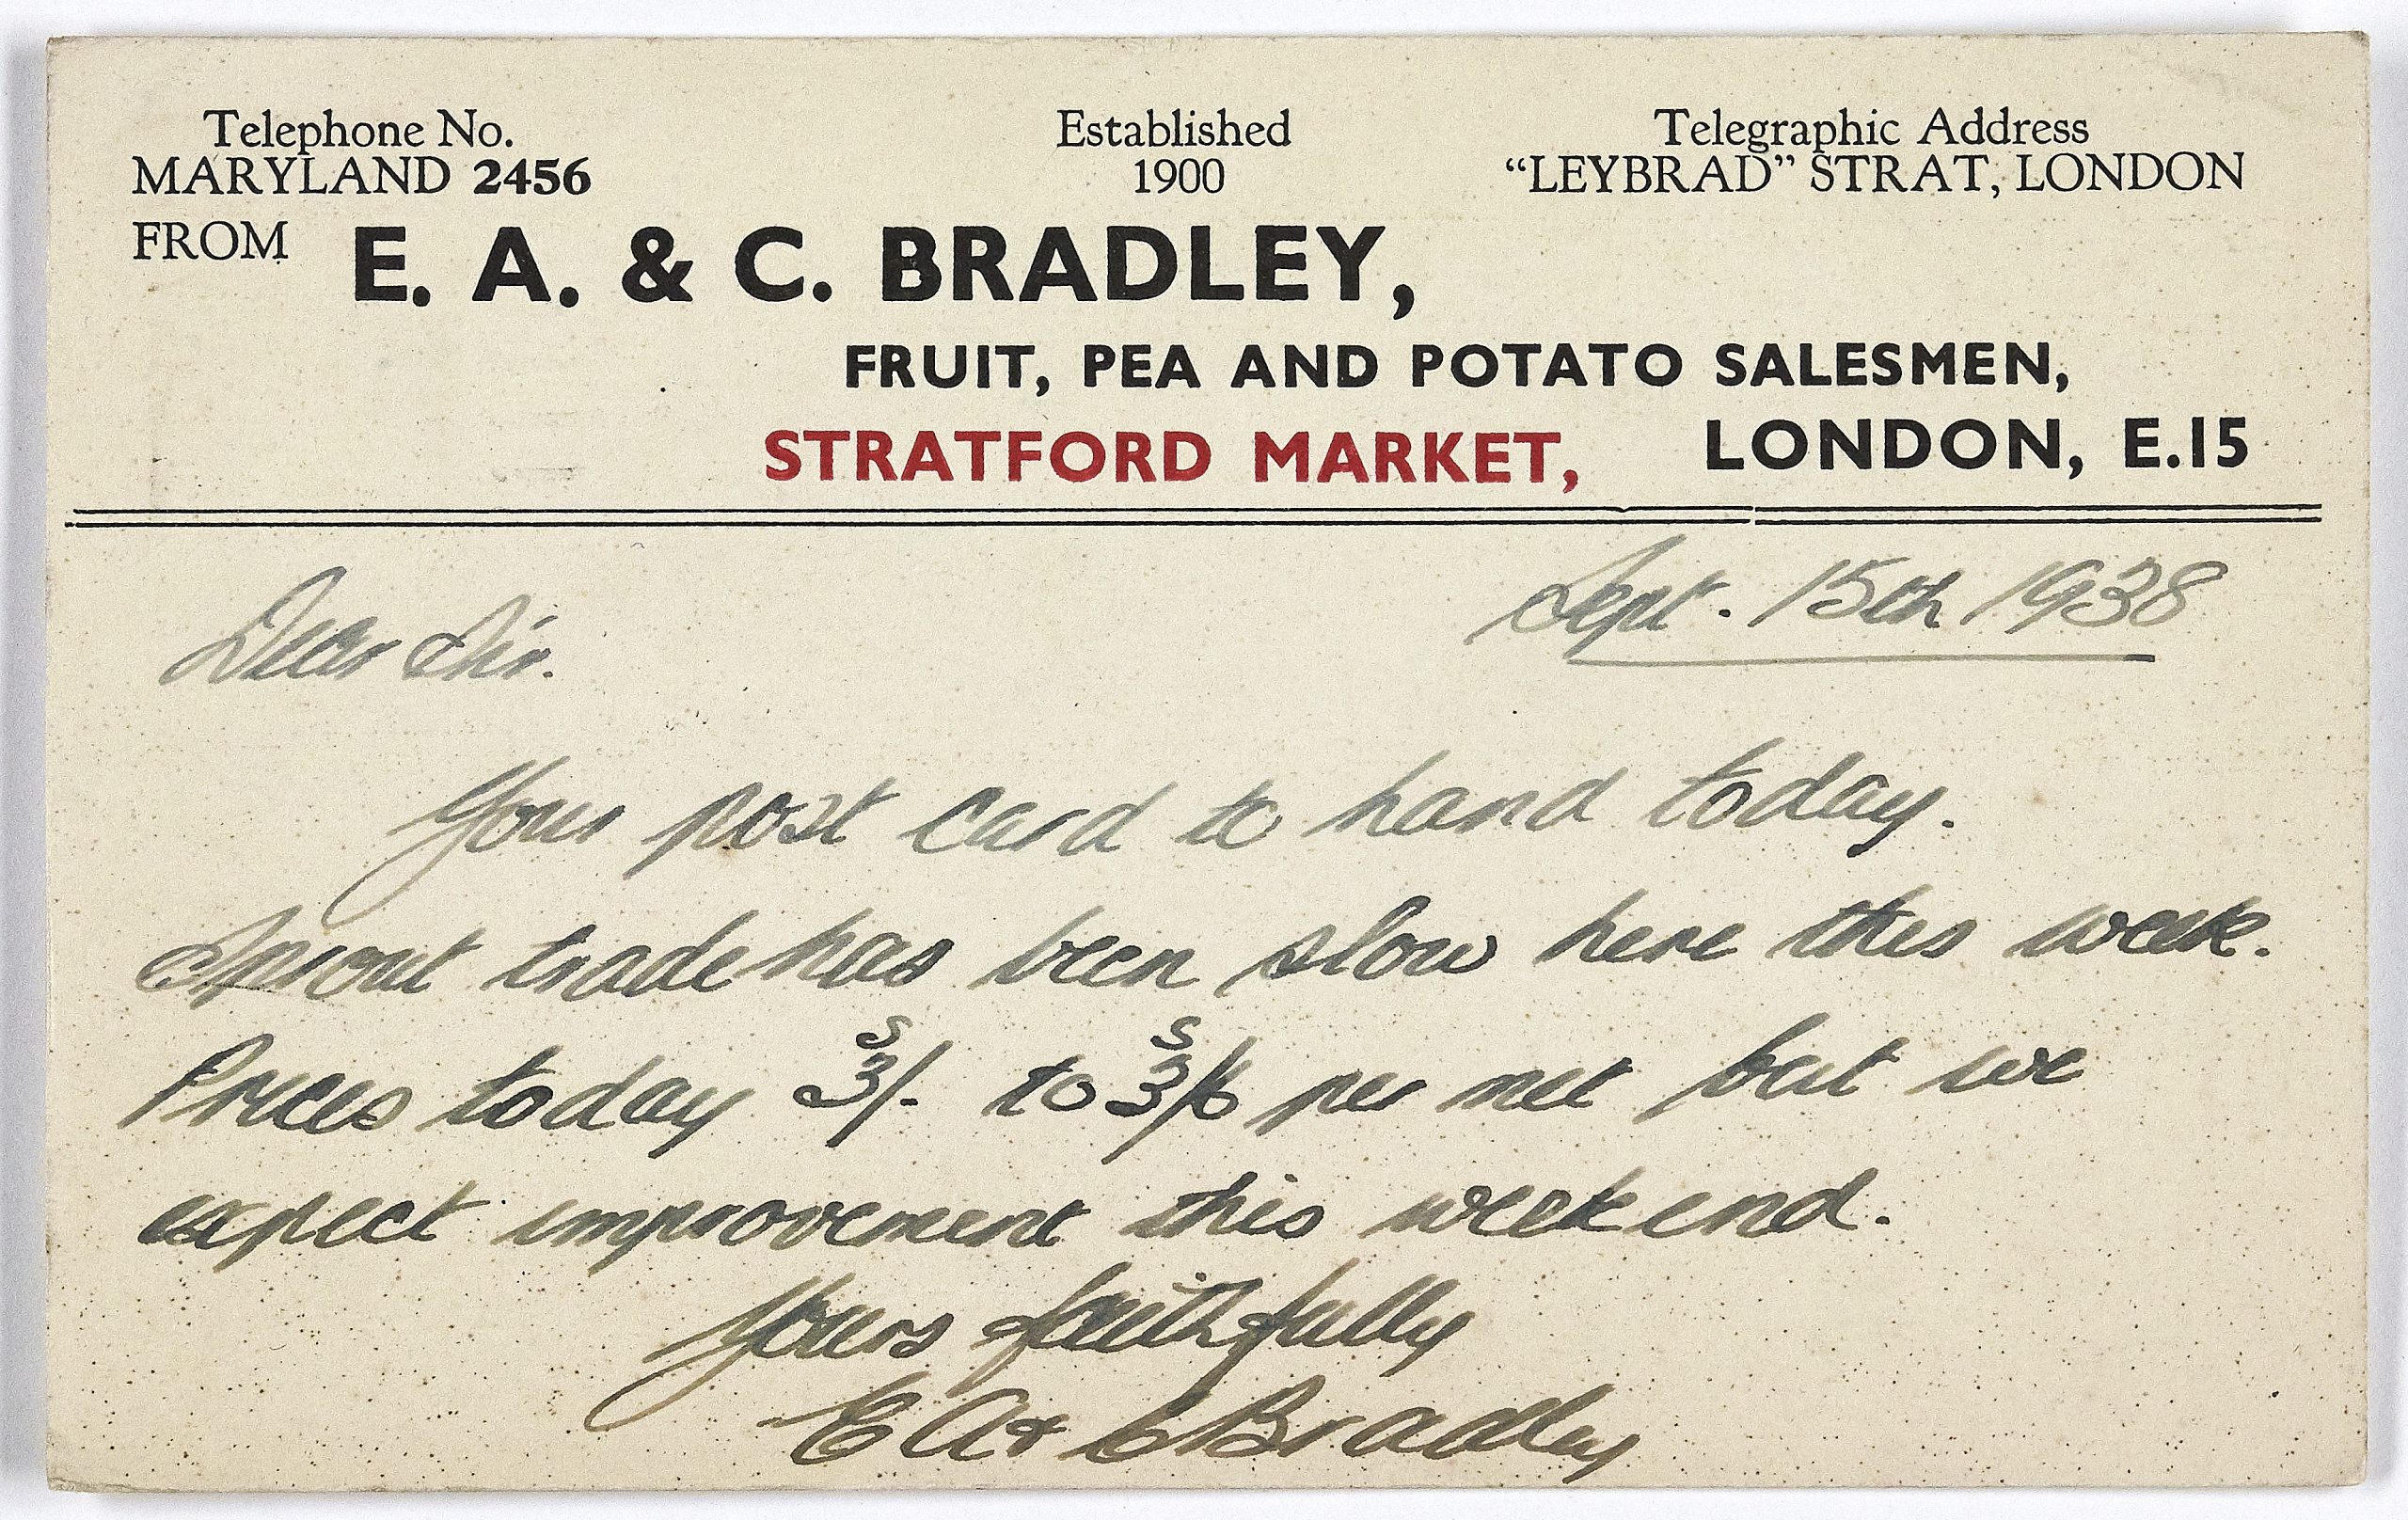 Telephone No. Established Telegraphic Address
MARYLAND 2456 1900 "LEYBRAD" STRAT, LONDON
FROM E. A. & C. BRADLEY,
FRUIT, PEA AND POTATO SALESMEN,
STRATFORD MARKET, LONDON, E.15
Sept. 15th 1938
Dear Sir.
Your post card to hand today.
Sprout trade has been slow here this week.
Prices today 3s/- to 3s/6 per net but we
expect improvement this week end.
Yours faithfully
E A & C Bradley